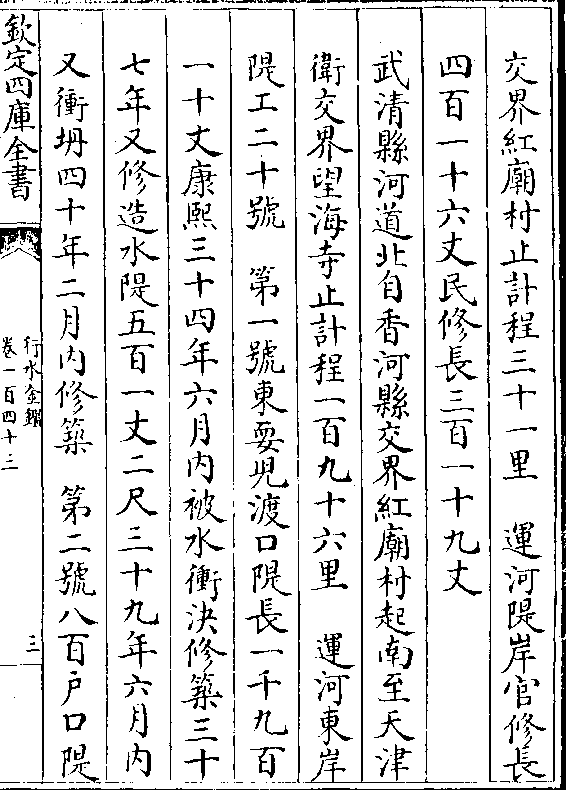 交界紅廟村止計程三十一里　運河隄岸官修長
四百一十六丈民修長三百一十九丈
武清縣河道北自香河縣交界紅廟村起南至天津
衛交界望海寺止計程一百九十六里　運河東岸
隄工二十號　第一號東耍兒渡口隄長一千九百
一十丈康熙三十四年六月内被水衝決修築三十
七年又修造水隄五百一丈二尺三十九年六月内
又衝坍四十年二月内修築　第二號八百户口隄
欽定四庫全書
行水金鑑
卷一百四十三
三